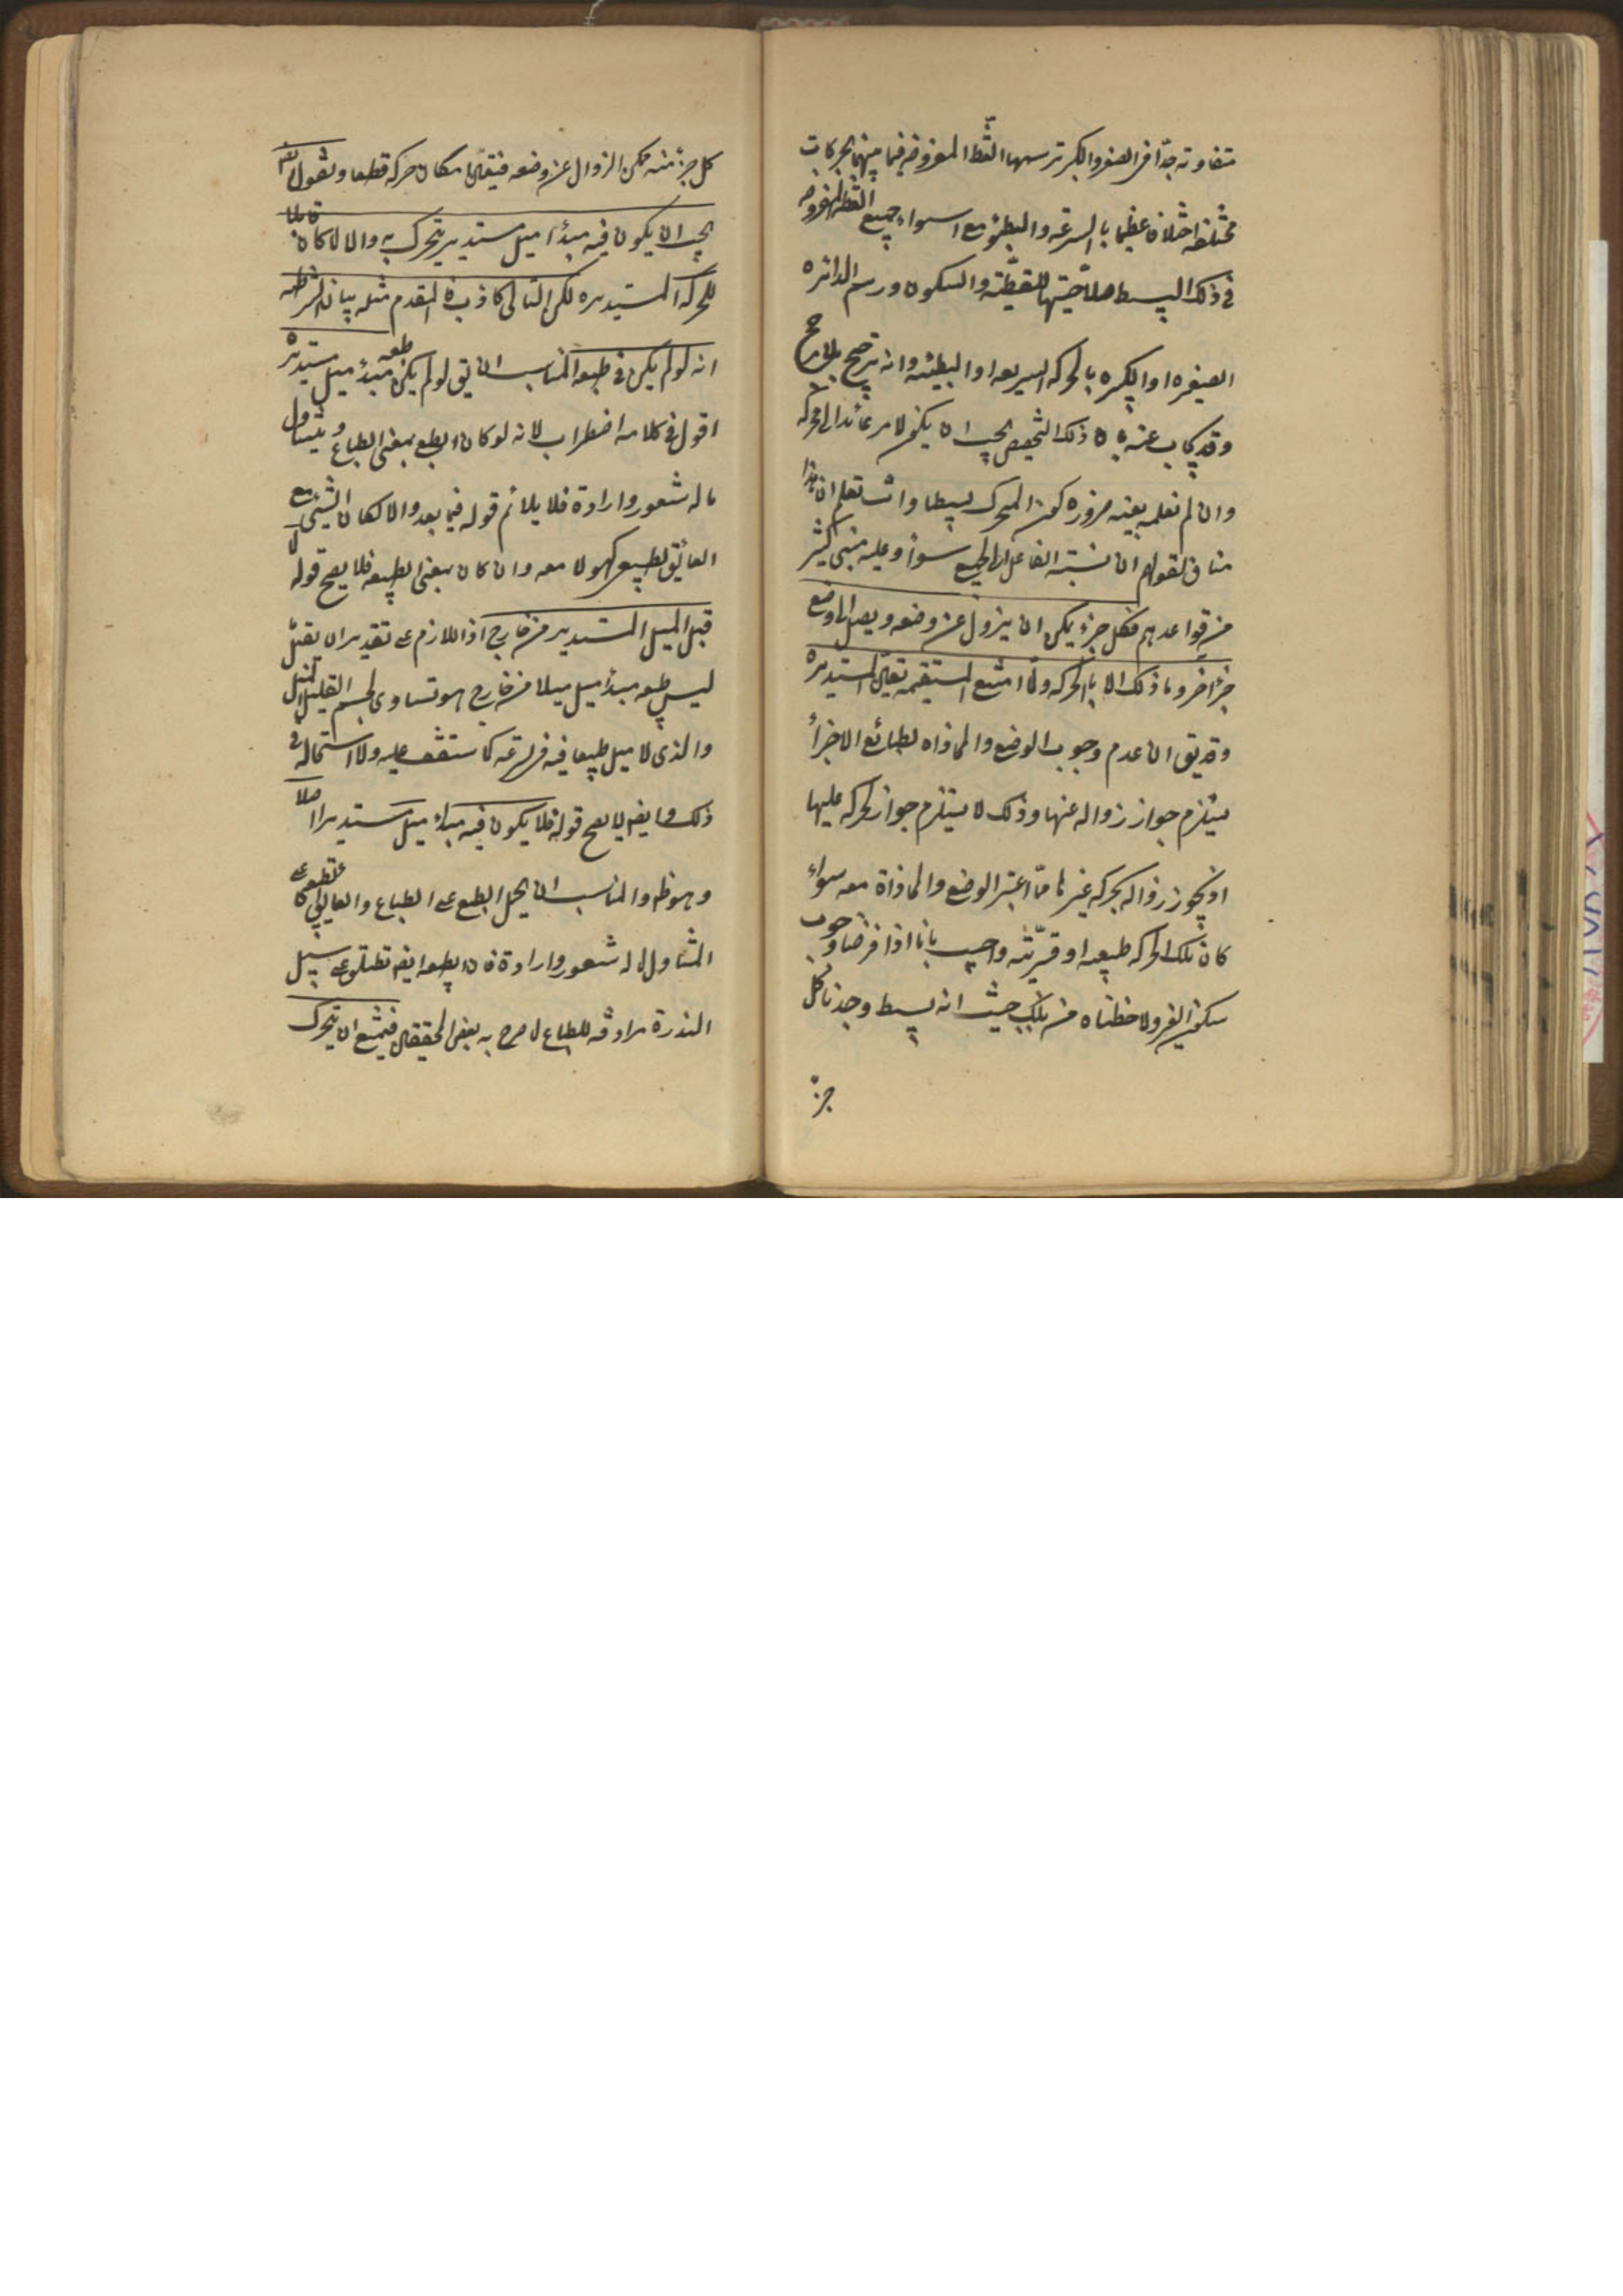 متفاوته جدّا فى الصغر والكبر ترسمها النقط المفروضه فيما بينهما بحركات
مختلفه اختلافا عظيما بالسرعة والبطئ مع استواء جميع النقط المفروضه
فى ذلك البسيط صلاحيتها للقطبيّته والسكون ورسم الدائره
الصغيره او الكبيره بالحركه السريعه او البطيئه وانه ترجيح بلا مرجح
وقد يجاب عنه بان ذلك التخصيص يجب ان يكون لامر عائد الى المحركه
وان لم نعلمه بعينه ضرورة كون المتحرك بسيطا وانت تعلم ان هذا
مناف لقولهم ان نسبته الفاعل الى الجميع سواء وعليه مبنى كثير
من قواعدهم فكل جزء يمكن ان يزول عن وضعه ويصل الى وضع
جزء اخر وما ذلك الا بالحركه ولما امتنع المستقيمه تعيّن المستديره
وقد يق ان عدم وجوب الوضع والمحاذاه لطبائع الاجزاء
يستلزم جواز زواله عنها وذلك لا يستلزم جواز الحركه عليها
اذ يجوز زواله بحركه غيرها ممّا اعتبر الوضع والمحاذاة معه سواء
كان تلك الحركه طبيعيه او قسريّته واجيب بانا اذا فرضنا وجوب
سكون الغير ولاحظناه من تلك حيث انه بسيط وجدنا كل
جزء
كل جزء منه ممكن الزوال عن وضعه فيتعيّن امكان حركه قطعا ونقول
يجب ان يكون فيه مبدء ميل مستدير يتحرك به والا لما كان قابلا
للحركه المستديره لكن التالى كاذب فالمقدم مثله بيان الشرطيه
انه لو لم يكن فى طبعه المناسب ان يق لو لم يكن طبعه مبدء ميل مستدير
اقول فى كلامه اضطراب لانه لو كان الطبع بمعنى الطباع ويتناول
ما له شعور وارادة فلا يلائم قوله فيما بعد والا لكان الشيئ مع
العائق الطبيعى كهو لا معه وان كان بمعنى الطبيعه فلا يصح قوله
قبل الميل المستدير من خارج اذ اللازم على تقدير ان يقبل
ليس طبعه مبدء ميل ميلا من خارج هو تساوى الجسم القليل الميل
والذى لا ميل طبيعيا فيه فى السرعه كما ستقف عليه ولا استحاله فى
ذلك وايضا لا يصح قوله فلا يكون فيه مبدء ميل مستدير اصلا
وهو ظ والمناسب ان يحمل الطبع على الطباع والعائق الطبيعى على
المتناول لما له شعور وارادة فان الطبيعه ايضا تطلق على سبيل
الندرة مرادفه للطباع كما صرح به بعض المحققين فيمتنع ان يتحرك